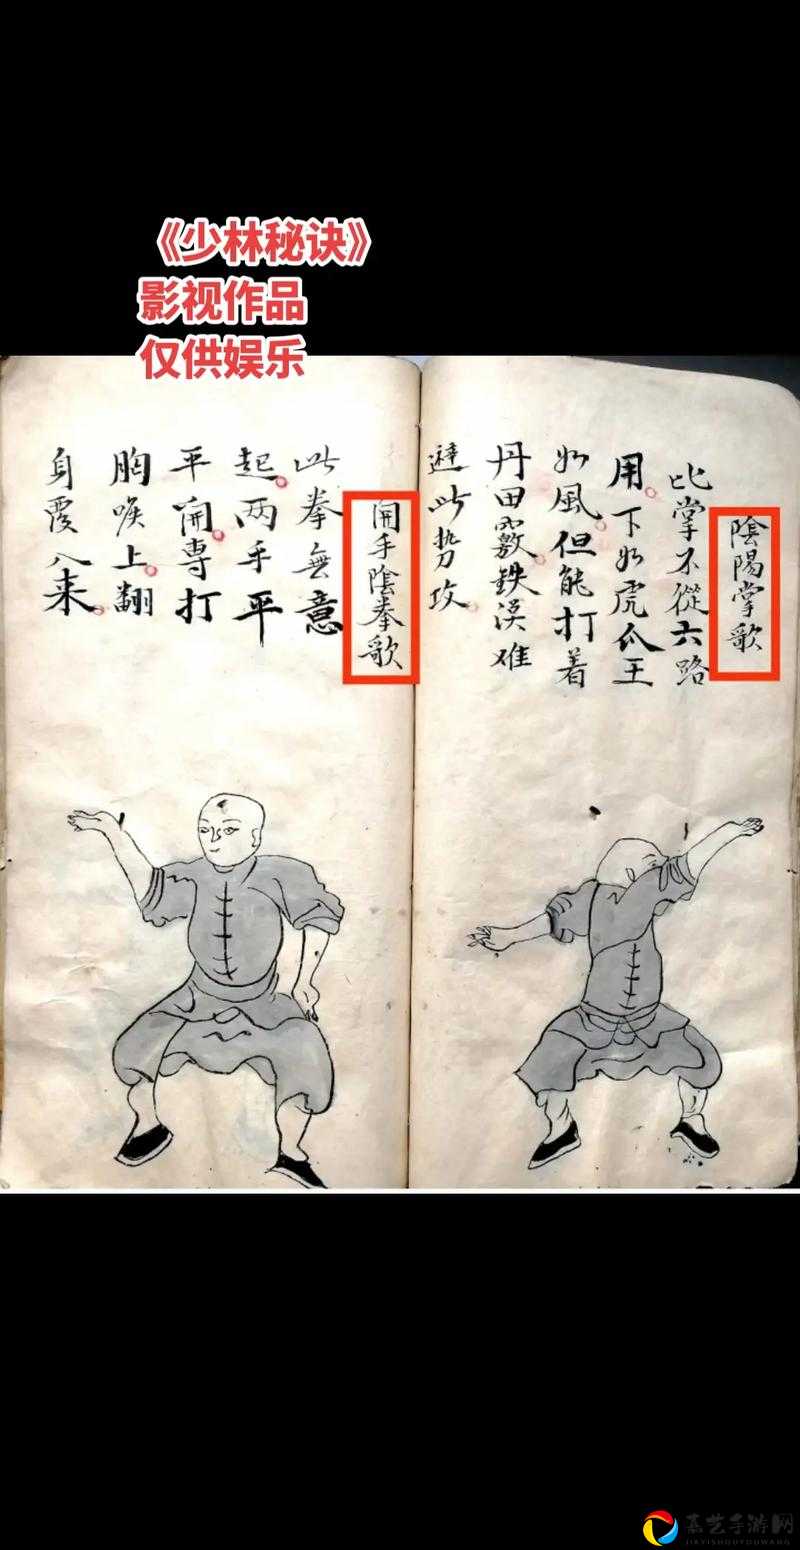 《少林秘诀》
影视作品
仅供娱乐
陰陽掌歌
比掌不從六路
用。下如虎爪王
如風。但能打着
丹田竅。鉄漢难
避此势攻。
開手陰拳歌
此拳無意
起。两手平
平開。專打
胸喉上。翻
身覆入来。
嘉艺手游网
JIAYISHOUYOUWANG